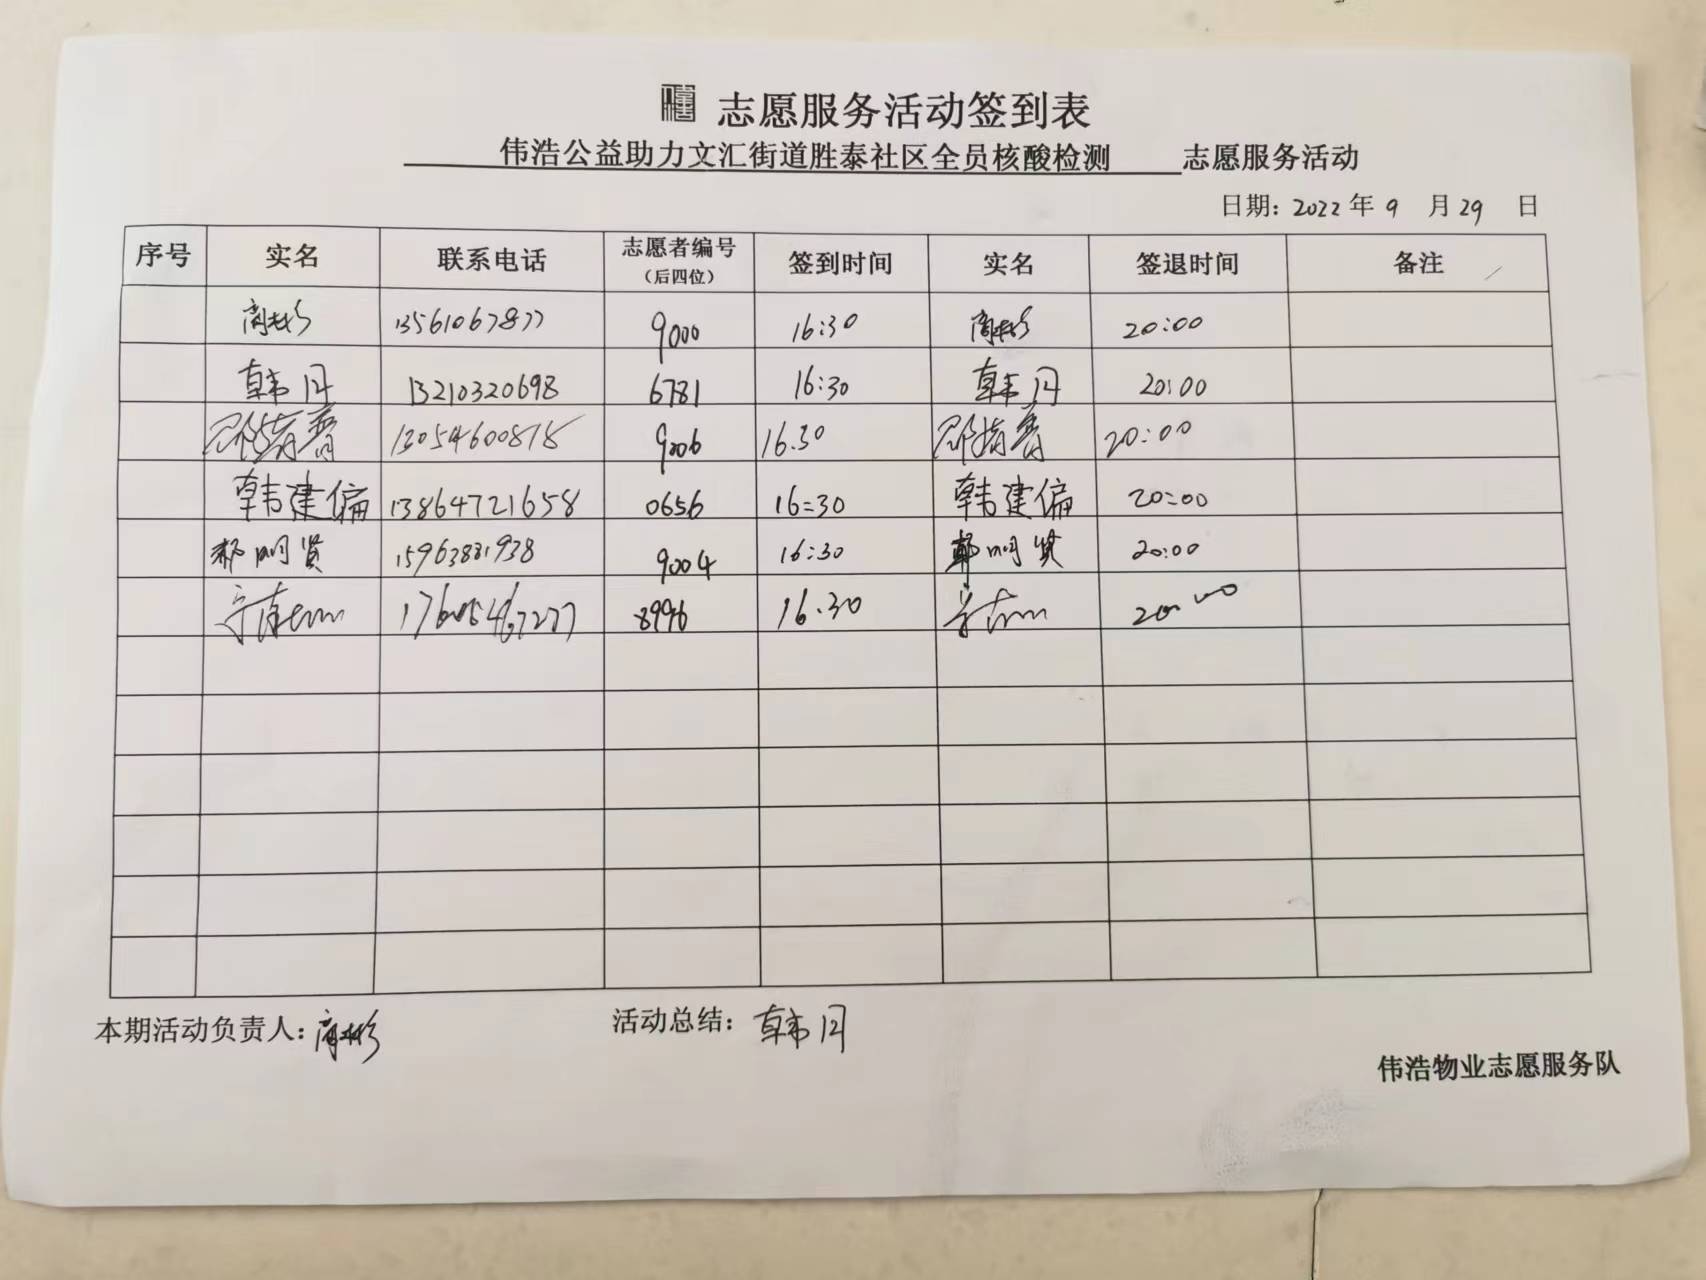 志愿服务活动签到表
伟浩公益助力文汇街道胜泰社区全员核酸检测 志愿服务活动
日期: 2022 年 9 月 29 日
序号 实名 联系电话 志愿者编号（后四位） 签到时间 实名 签退时间 备注
13561067877 9000 16:30 20:00
韩月 13210320698 6781 16:30 韩月 20:00
13054600815 9006 16.30 20:00
韩建偏 13864721658 0656 16:30 韩建偏 20:00
郝明贤 15963881938 9004 16:30 郝明贤 20:00
17605467277 8996 16.30 20:00
本期活动负责人: 活动总结: 韩月
伟浩物业志愿服务队